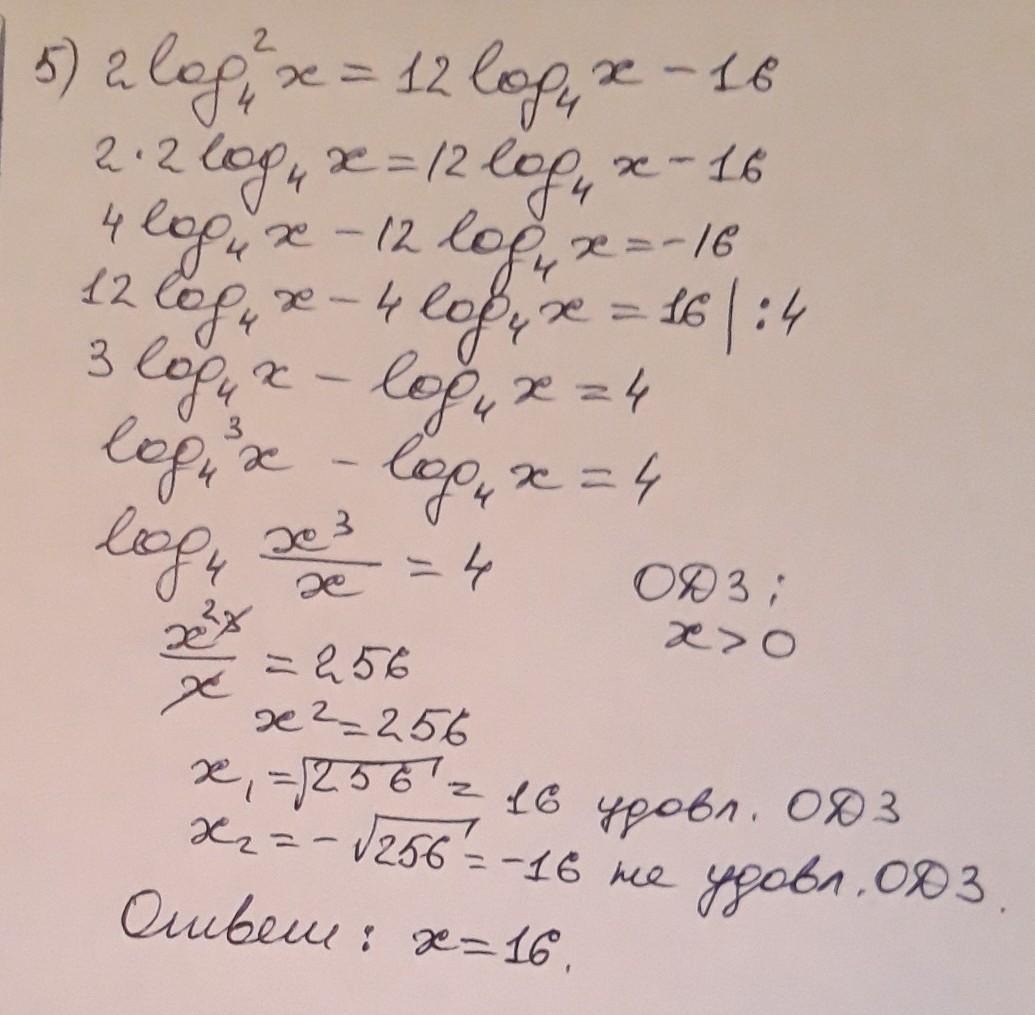 5) 2 log₄² x = 12 log₄ x - 16
2 · 2 log₄ x = 12 log₄ x - 16
4 log₄ x - 12 log₄ x = -16
12 log₄ x - 4 log₄ x = 16 | : 4
3 log₄ x - log₄ x = 4
log₄ ³x - log₄ x = 4
log₄ x³/x = 4
ОДЗ:
x > 0
x²x/x = 256
x² = 256
x₁ = √256 = 16 удовл. ОДЗ
x₂ = -√256 = -16 не удовл. ОДЗ.
Ответ: x = 16.